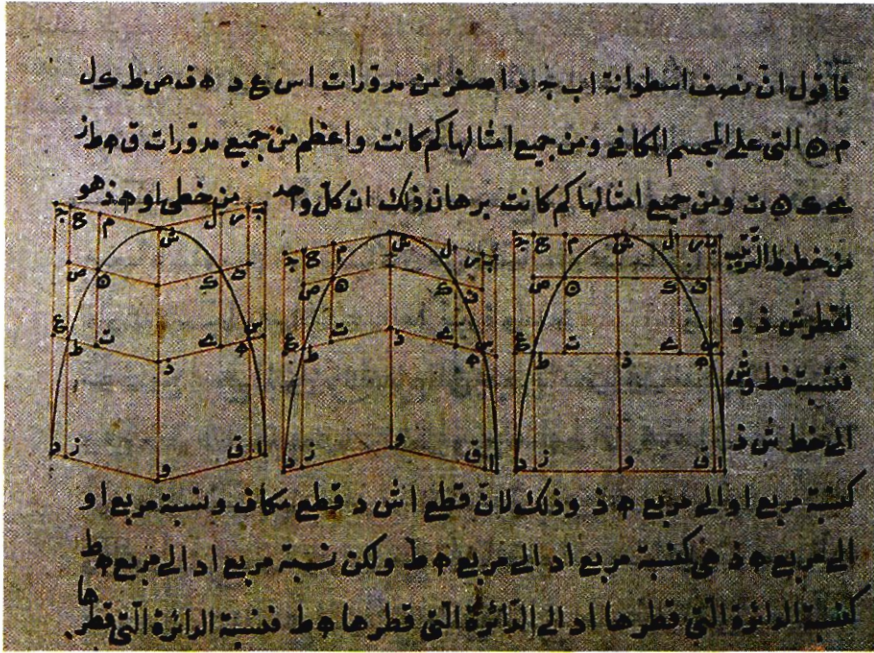 فاقول ان نصف اسطوانة اب جد اصغر من مدورات اس ع د ه ف ص ط ك ل
م ن التى على المجسم المكافى ومن جميع امثالها كم كانت واعظم من جميع مدورات ق ه ط ز
ى ك ن ت ومن جميع امثالها كم كانت برهان ذلك ان كل واحد من خطى او ه ذ هو
من خطوط الترتيب
لقطر ش ذ و
فنسبة خط وش
الى خط ش ذ
كنسبة مربع او الى مربع ه ذ وذلك لان قطع اش د قطع مكاف ونسبة مربع او
الى مربع ه ذ هى كنسبة مربع اد الى مربع ه ط ولكن نسبة مربع اد الى مربع ه ط
كنسبة الدائرة التى قطرها اد الى الدائرة التى قطرها ه ط فنسبة الدائرة التى قطرها